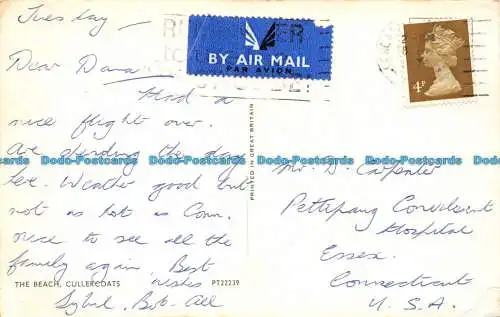 Tuesday —
Dear Dana
Had a
nice flight over.
Are spending the day
here. Weather good but
not as hot as Conn.
nice to see all the
family again. Best
wishes
Sybil, Bob - All
THE BEACH, CULLERCOATS
PT22239
BY AIR MAIL
PAR AVION
4P
PRINTED IN GREAT BRITAIN
Mr. D. Carpenter
Pettipaug Convalescent
Hospital
Essex.
Connecticut
U. S. A.
Dodo-Postcards Dodo-Postcards Dodo-Postcards Dodo-Postcards
Dodo-Postcards Dodo-Postcards Dodo-Postcards Dodo-Postcards